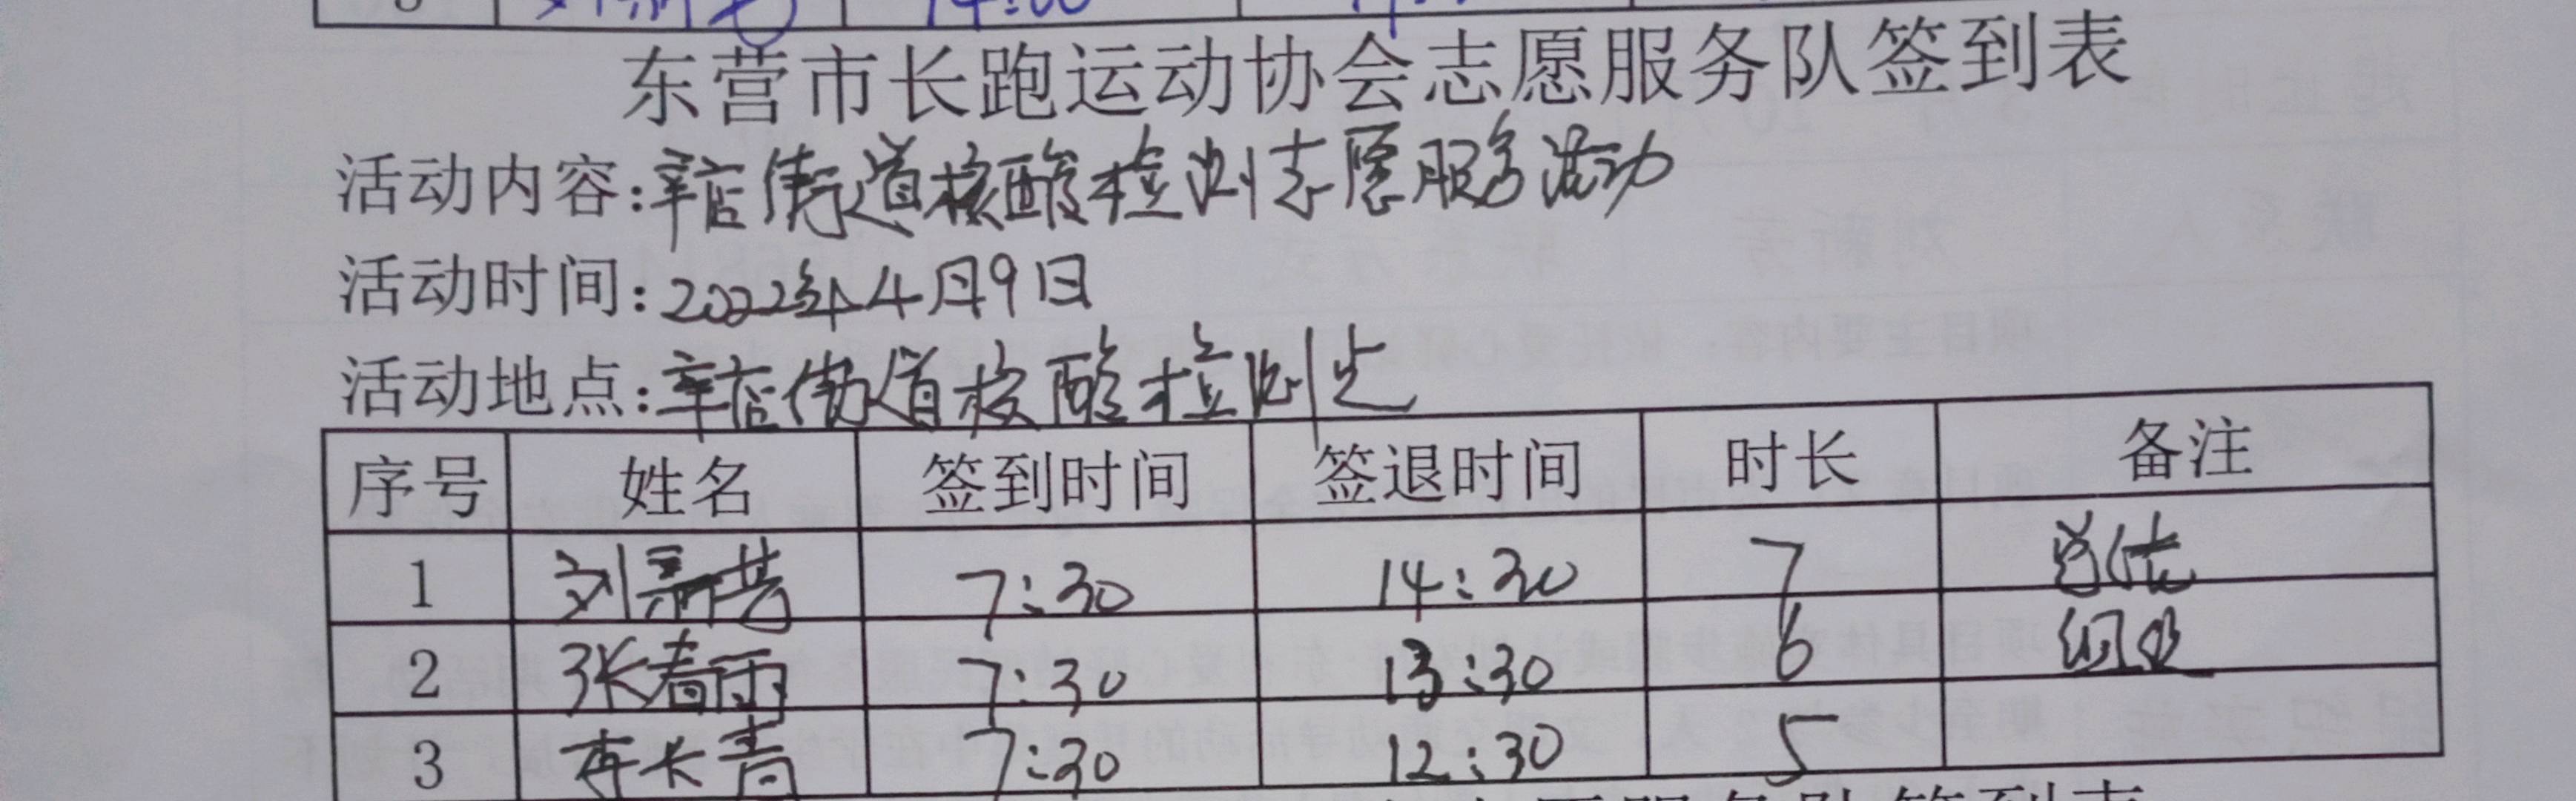 14:00
东营市长跑运动协会志愿服务队签到表
活动内容:辛店街道核酸检测志愿服务活动
活动时间:2022年4月9日
活动地点:辛店街道核酸检测点
序号 姓名 签到时间 签退时间 时长 备注
1 刘新芸 7:30 14:30 7
2 张春雨 7:30 13:30 6
3 长青 7:30 12:30 5
服务队签到表